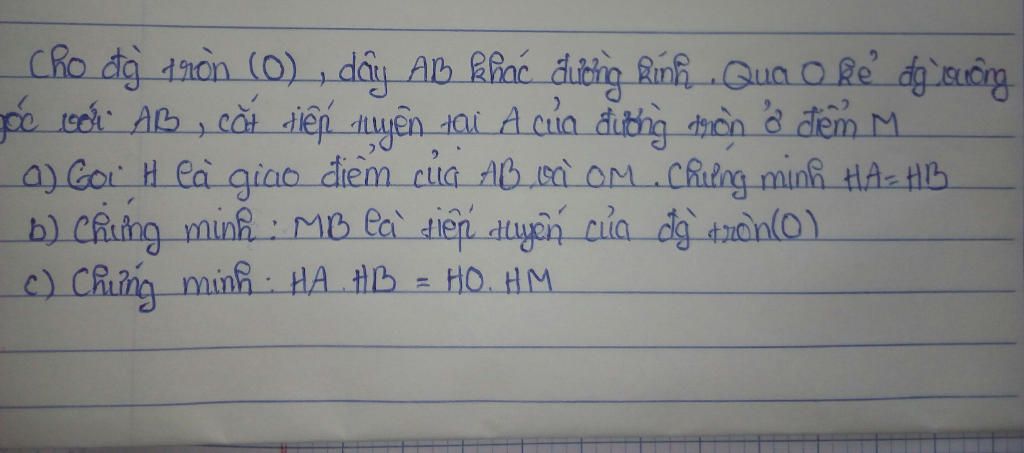 Cho đg tròn (O), dây AB khác đường kính. Qua O kẻ đg vuông
góc với AB, cắt tiếp tuyến tại A của đường tròn ở điểm M
a) Gọi H là giao điểm của AB và OM. Chứng minh HA = HB
b) Chứng minh: MB là tiếp tuyến của đg tròn (O)
c) Chứng minh: HA.HB = HO.HM